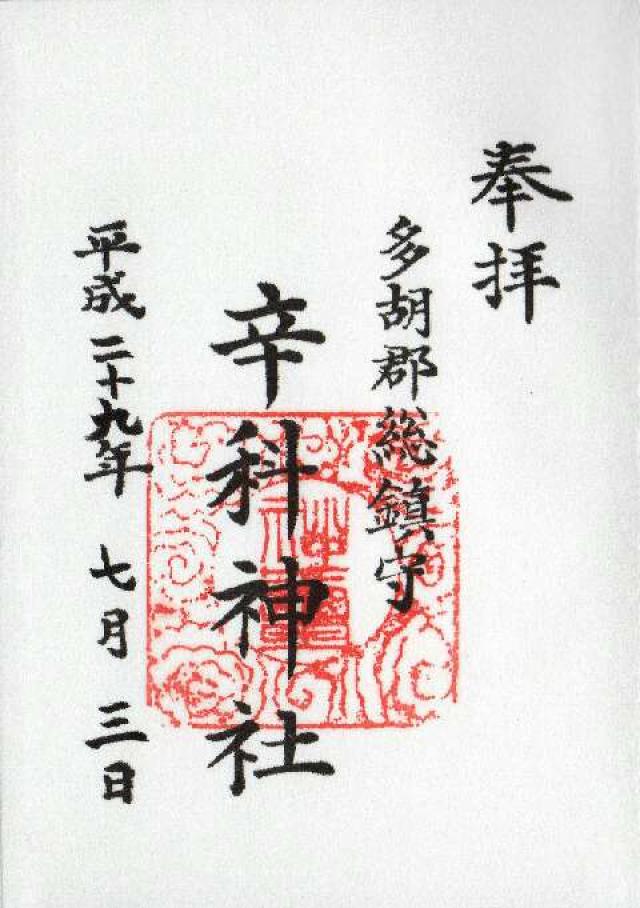 奉拝
多胡郡総鎮守
辛科神社
平成二十九年 七月 三日